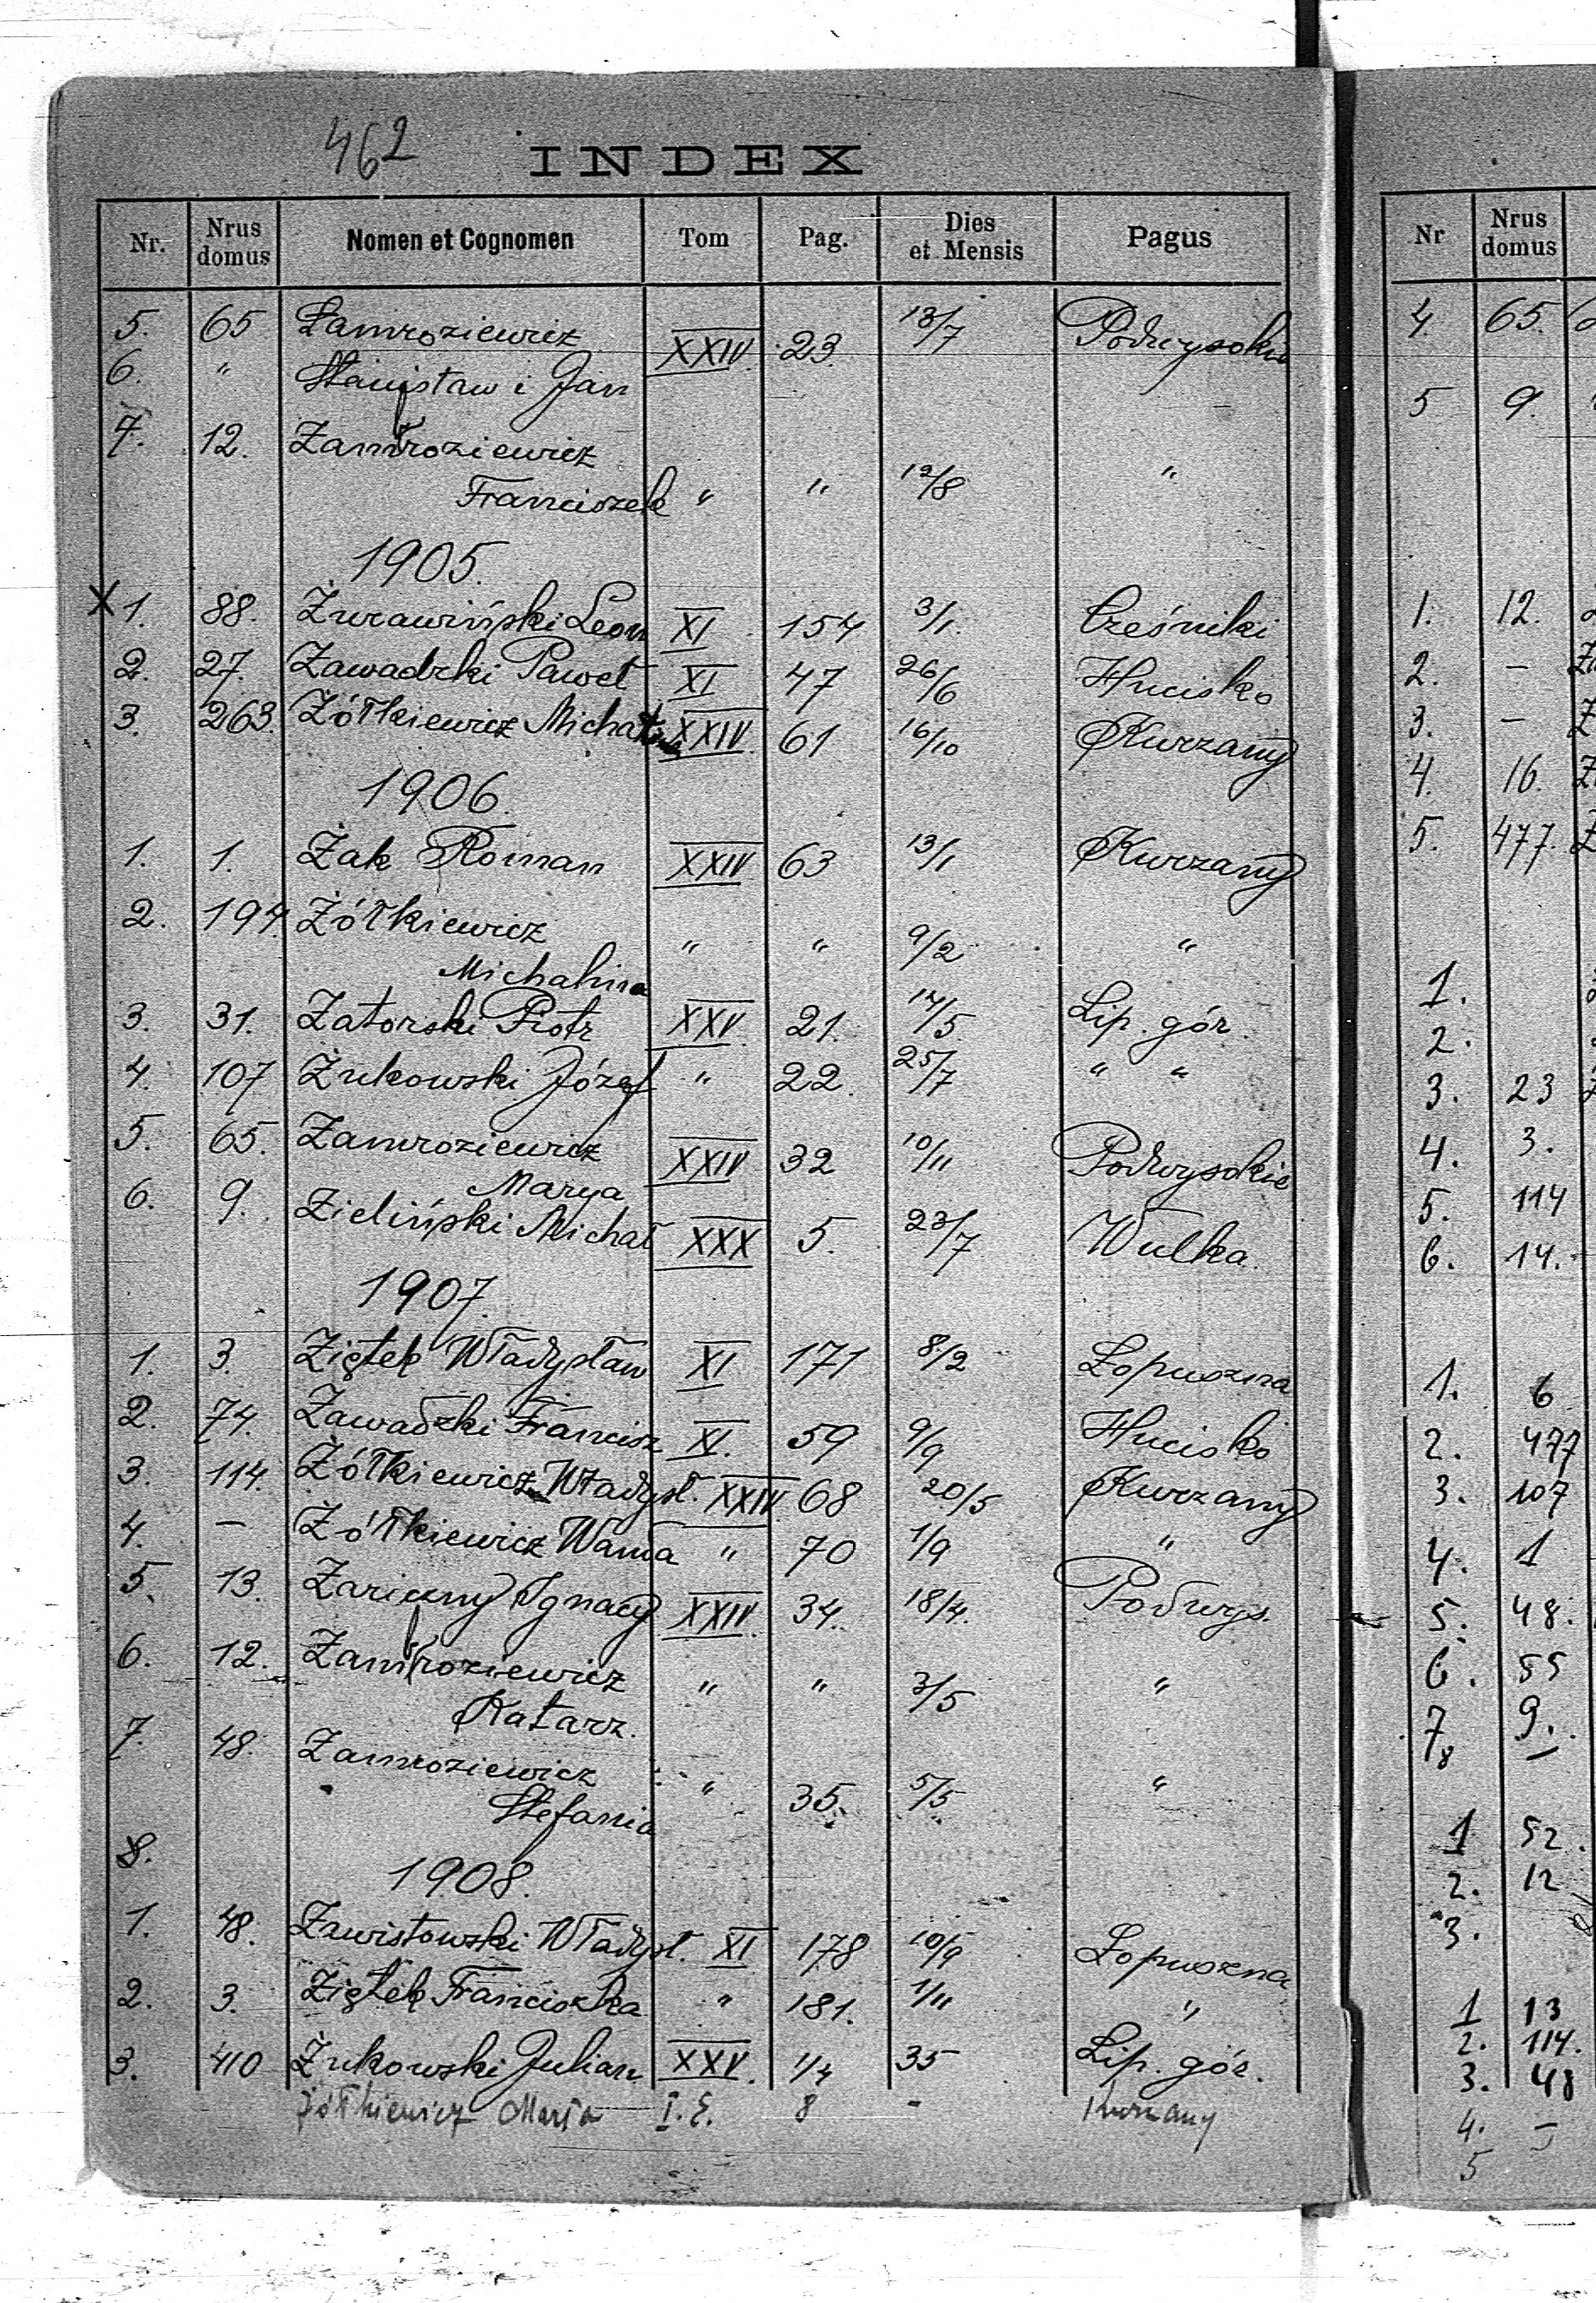 462 INDEX
Nr. Nrus domus Nomen et Cognomen Tom Pag. Dies et Mensis Pagus
5. 65 Zamroziewicz XXIV 23 13/7 Podwysokie
6. " Stanisław i Jan
7. 12. Zamroziewicz
Franciszek " " 12/8 "
1905.
X 1. 88. Żurawiński Leon XI 154 3/1. Cześniki
2. 27. Zawadzki Paweł XI 47 26/6 Hucisko
3. 263. Żółkiewicz Michał XXIV 61 16/10 Kurzany
1906.
1. 1. Żak Roman XXIV 63 13/1 Kurzany
2. 194. Żółkiewicz
Michalina " " 9/2 "
3. 31. Zatorski Piotr XXV 21. 14/5 Lip. gór.
4. 107 Żukowski Józef " 22. 25/7 " "
5. 65. Zamroziewicz XXIV 32 10/11 Podwysokie
Marya
6. 9. Zieliński Michał XXX 5. 23/7 Wulka
1907.
1. 3. Ziętek Władysław XI 171 8/2 Łopuszna
2. 74. Zawadzki Francisz XI. 59 9/9 Hucisko
3. 114. Żółkiewicz Władysł. XXIV 68 20/5 Kurzany
4. – Żółkiewicz Wanda " 70 1/9 "
5. 13. Zariczny Ignacy XXIV. 34. 18/4. Podwys.
6. 12. Zamroziewicz " " 3/5 "
Katarz.
7. 48. Zamroziewicz " 35. 5/5 "
Stefania
8.
1908.
1. 48. Zawistowski Władysł. XI 178 10/9 Łopuszna
2. 3. Ziętek Franciszka " 181. 1/11 "
3. 410 Żukowski Julian XXV. 1/4 35 Lip. gór.
Żółkiewicz Maria I. E. 8 - Kurzany
Nr Nrus domus
4 65.
5 9.
1. 12.
2. –
3. –
4. 16.
5. 477.
1.
2.
3. 23
4. 3.
5. 114
6. 14.
1. 6
2. 477
3. 107
4. 1
5. 48.
6. 55
7 9.
8 –
1 52.
2. 12
3.
1 13
2. 114.
3. 48
4. –
5